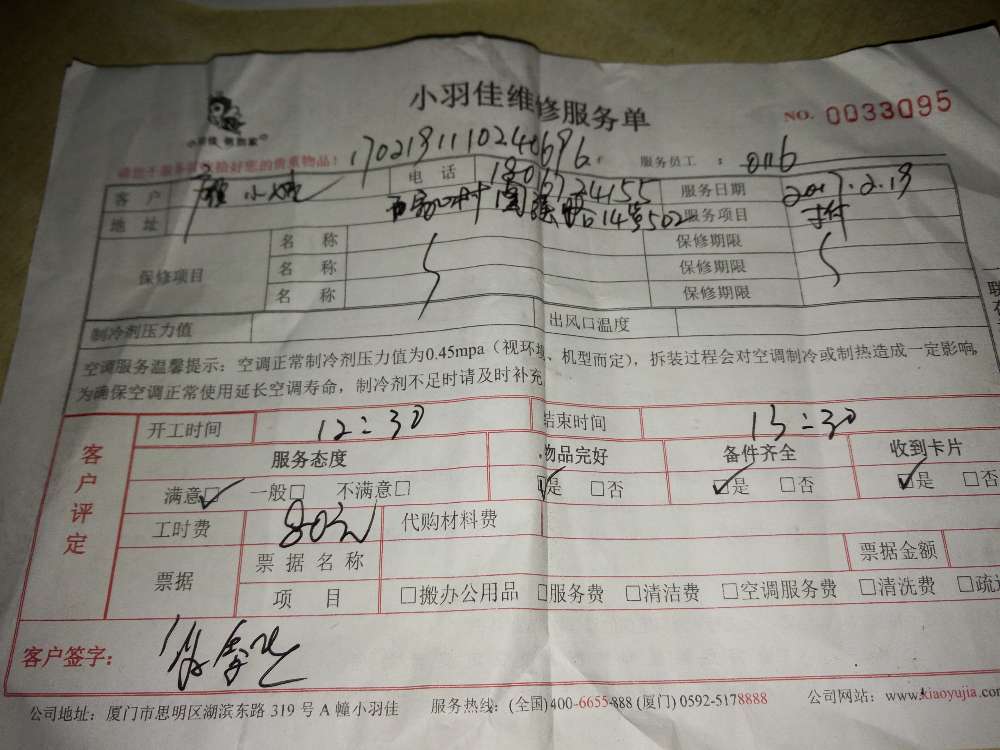 小羽佳维修服务单
NO. 0033095
服务员工 : 0116
客户 小姐 电话 服务日期 2017.2.19
地址 14号502 服务项目
保修项目 名称 保修期限
名称 保修期限
名称 保修期限
制冷剂压力值 出风口温度
空调服务温馨提示：空调正常制冷剂压力值为0.45mpa（视环境、机型而定），拆装过程会对空调制冷或制热造成一定影响，
为确保空调正常使用延长空调寿命，制冷剂不足时请及时补充
客户评定
开工时间 12:30 结束时间 13:30
服务态度 物品完好 备件齐全 收到卡片
满意☑ 一般□ 不满意□ ☑是 □否 ☑是 □否 ☑是 □否
工时费 80元 代购材料费
票据 票据名称 票据金额
项目 □搬办公用品 □服务费 □清洁费 □空调服务费 □清洗费
客户签字：
公司地址：厦门市思明区湖滨东路 319 号 A 幢小羽佳 服务热线：(全国)400-6655-888 (厦门) 0592-5178888 公司网站：www.xiaoyujia.com